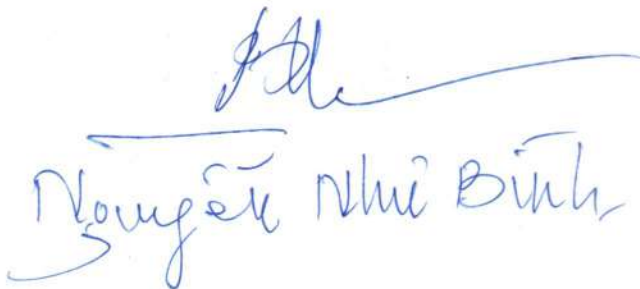 Nguyễn Như Bình